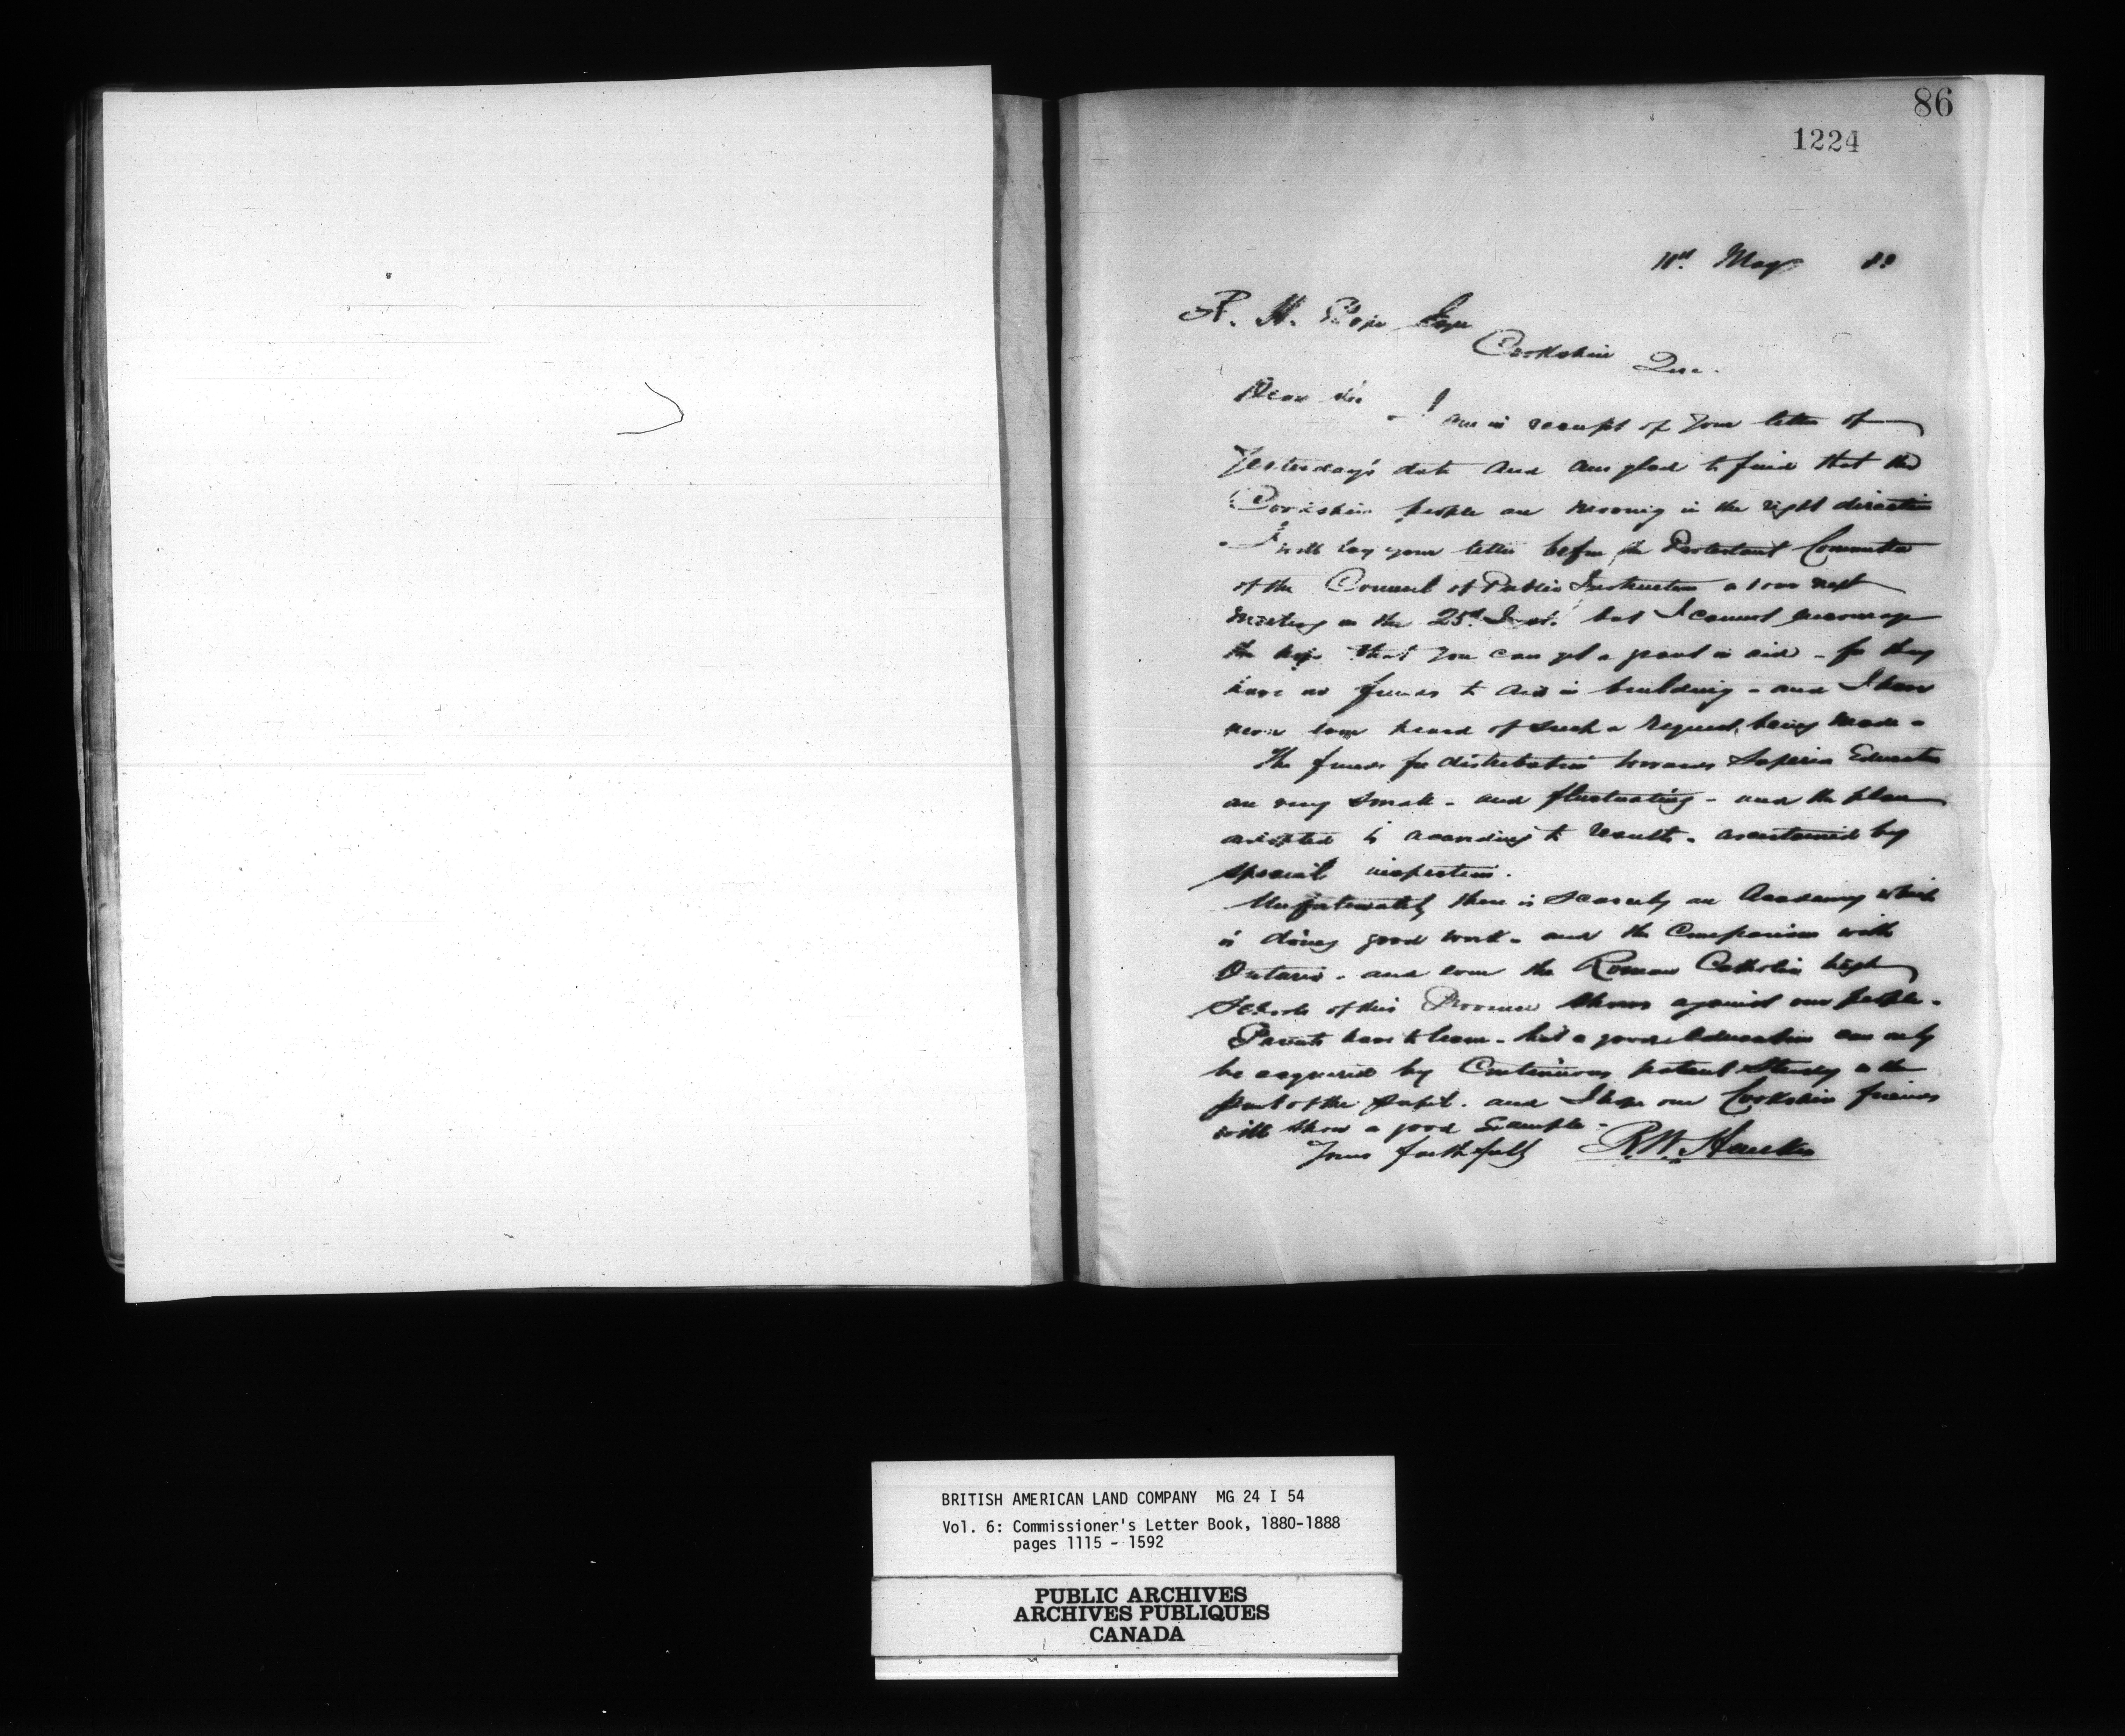 86
1224
May
R. H. Pope Esqr
Cookshire Que.
Dear Sir
- I am in receipt of your letter of
Yesterday's date and am glad to find that the
Cookshire people are moving in the right direction
- I will lay your letter before the Protestant Committee
of the Council of Public Instruction at our next
meeting on the 25th Inst. but I cannot encourage
the hope that you can get a grant in aid - for they
have no funds to aid in building - and I have
never even heard of such a request being made -
The funds for distribution towards Superior Education
are very small - and fluctuating - and the plan
adopted is according to results - ascertained by
special inspection.
Unfortunately there is scarcely an Academy which
is doing good work - and the Comparison with
Ontario - and even the Roman Catholic high
Schools of this Province shows against our people -
Parents have to learn - that a good education can only
be acquired by Continuous patient Study on the
part of the pupil - and I hope our Cookshire friends
will show a good Example -
Yours faithfully R. W. Heneker
BRITISH AMERICAN LAND COMPANY MG 24 I 54
Vol. 6: Commissioner's Letter Book, 1880-1888
pages 1115 - 1592
PUBLIC ARCHIVES
ARCHIVES PUBLIQUES
CANADA